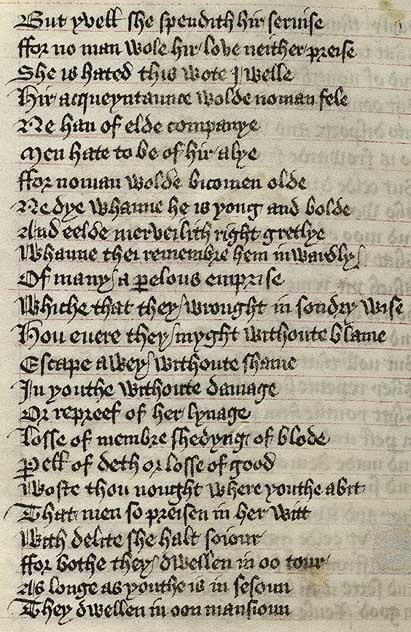 But yvell she spendith hir servise
ffor no man wole hir love neither preise
She is hated this wote I welle
Hir acqueyntaunce wolde noman fele
Ne han of elde companye
Men hate to be of hir alye
ffor noman wolde bicomen olde
Ne dye whanne he is yong and bolde
And eelde merveilith right gretlye
Whanne thei remembre hem inwardly /
Of many / a pelous emprise
Whiche that they / wrought in sondry wise
Hou euere they / myght withoute blame
Escape awey / withoute shame
In youthe withoute damage
Or repreef of her lynage
Losse of membre shedyng / of blode
Pell of deth or losse of good
Woste thou nought where youthe abit
That men so preisen in her witt
With delite she halt soiour
ffor bothe they / dwellen in oo tour
As longe as youthe is in sesoun
They dwellen in oon mansioun